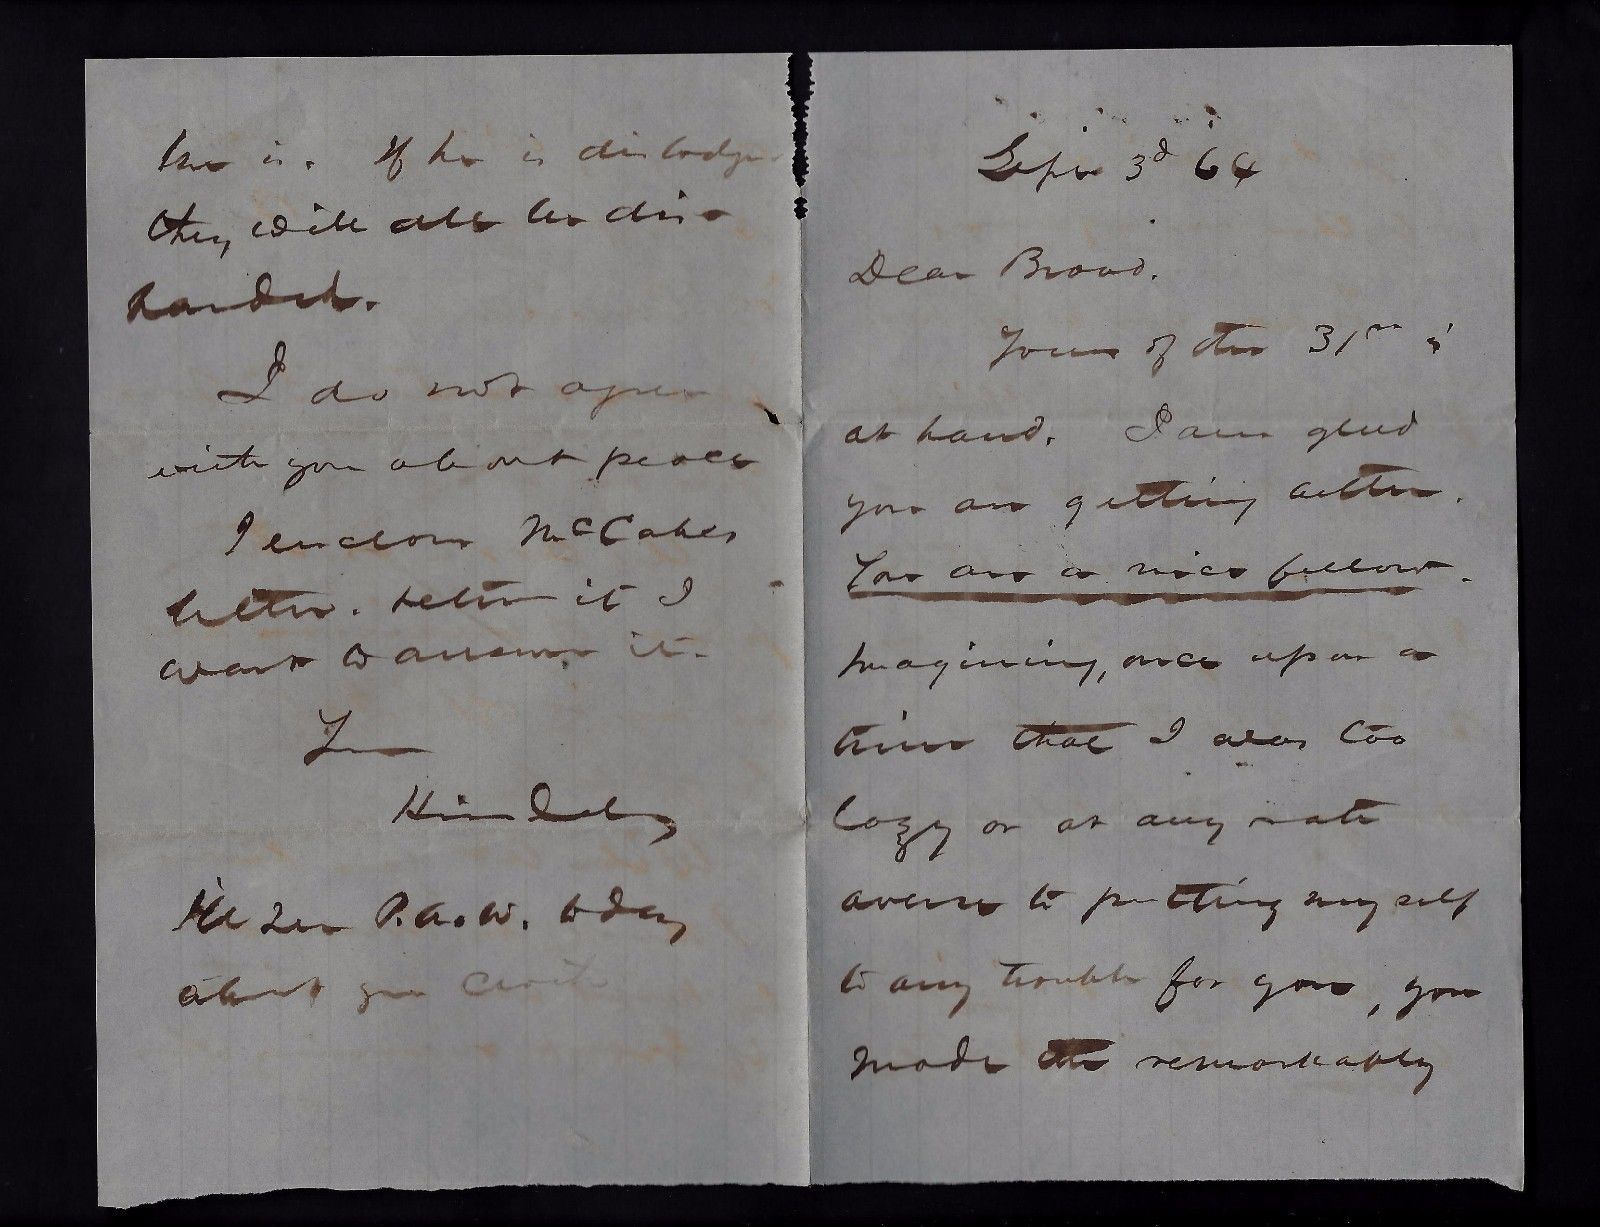 Sept 3d 64
Dear Broad.
Yours of the 31st is
at hand. I am glad
you are getting better.
You are a nice fellow.
Imagining, once upon a
time that I was too
lazy or at any rate
averse to putting myself
to any trouble for you, you
made the remarkably
he is. If he is dislodge
they will all be dis-
banded.
I do not agree
with you about peace
I enclose McCabes
letter. return it I
want to answer it.
Yrs
P.A.W. today
about your